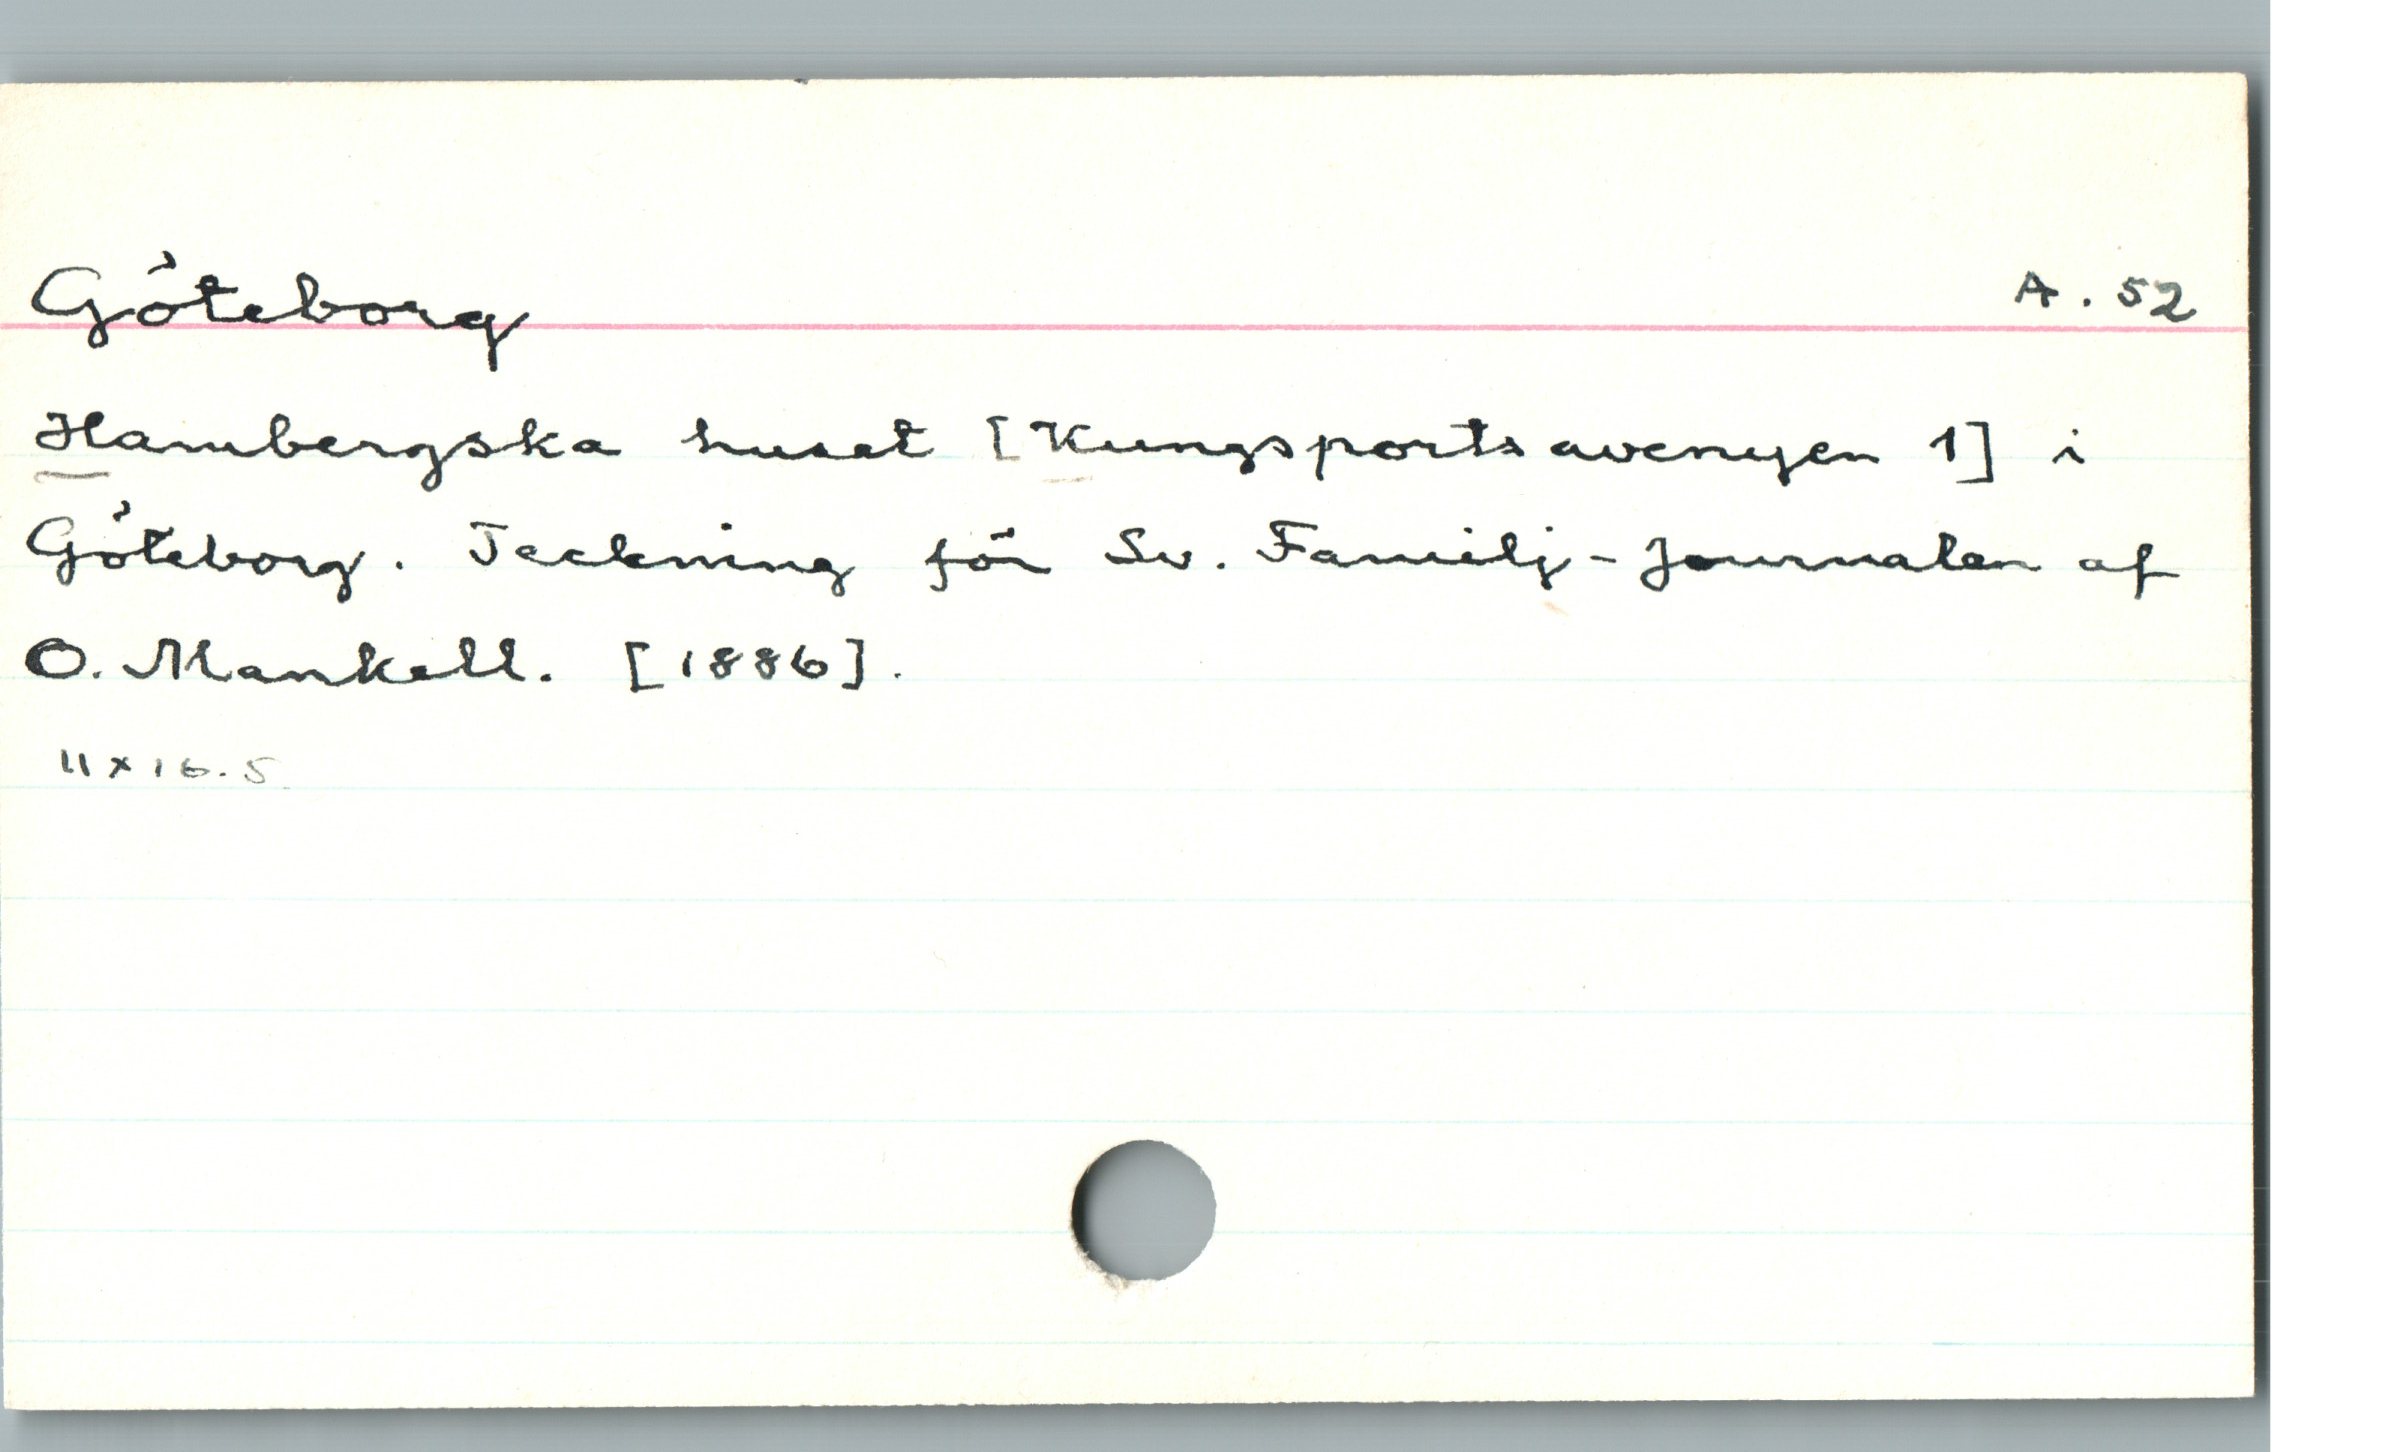 Göteborg A. 52
Hambergska huset [Kungsportsavenyen 1] i
Göteborg. Teckning för Sv. Familj-Journalen af
O. Mankell. [1886].
11 x 16.5